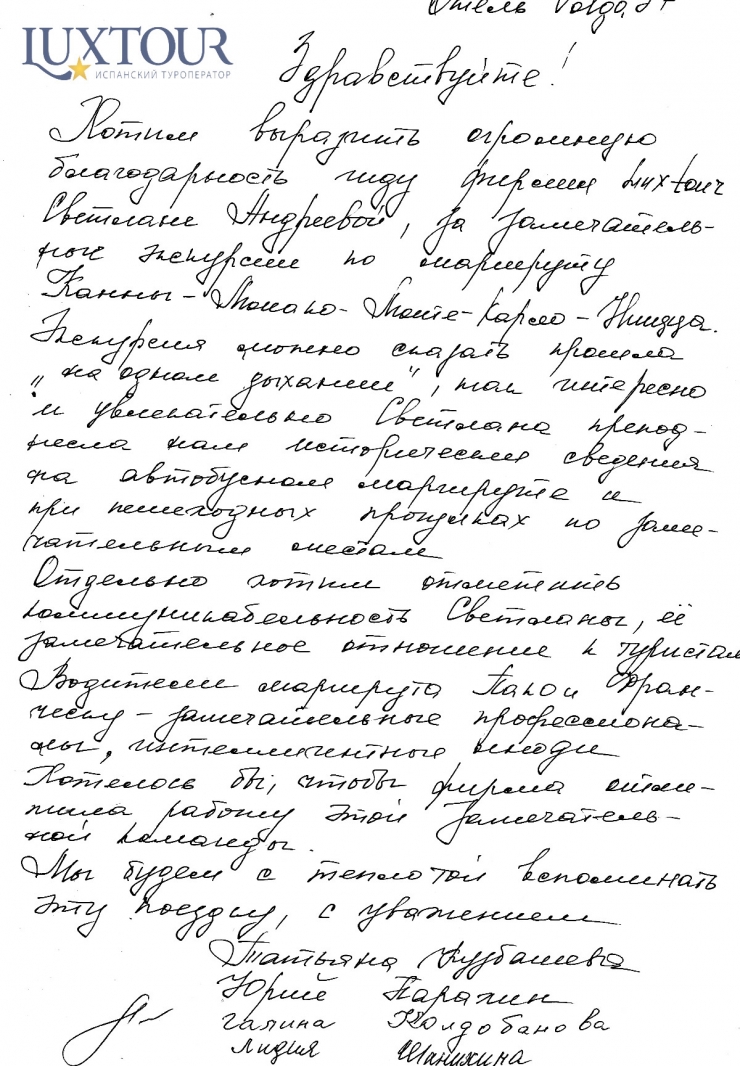 Отель
LUXTOUR
ИСПАНСКИЙ ТУРОПЕРАТОР
Здравствуйте!
Хотим выразить огромную
благодарность гиду фирмы
Светлане Андреевой, за замечатель-
ную экскурсию по маршруту
Канны-Монако-Монте-Карло-Ницца.
Экскурсия можно сказать прошла
„на одном дыхании", так интересно
и увлекательно Светлана препод-
несла нам исторические сведения
на автобусном маршруте и
при пешеходных прогулках по заме-
чательным местам
Отдельно хотим отметить
коммуникабельность Светланы, её
замечательное отношение к туристам
Водители маршрута Пакои Фран-
ческу - замечательные профессиона-
лы, интеллигентные люди
Хотелось бы, чтобы фирма отме-
тила работу этой замечатель-
ной команды.
Мы будем с теплотой вспоминать
эту поездку, с уважением
Татьяна
Юрий
Галина Колдобанова
Лидия